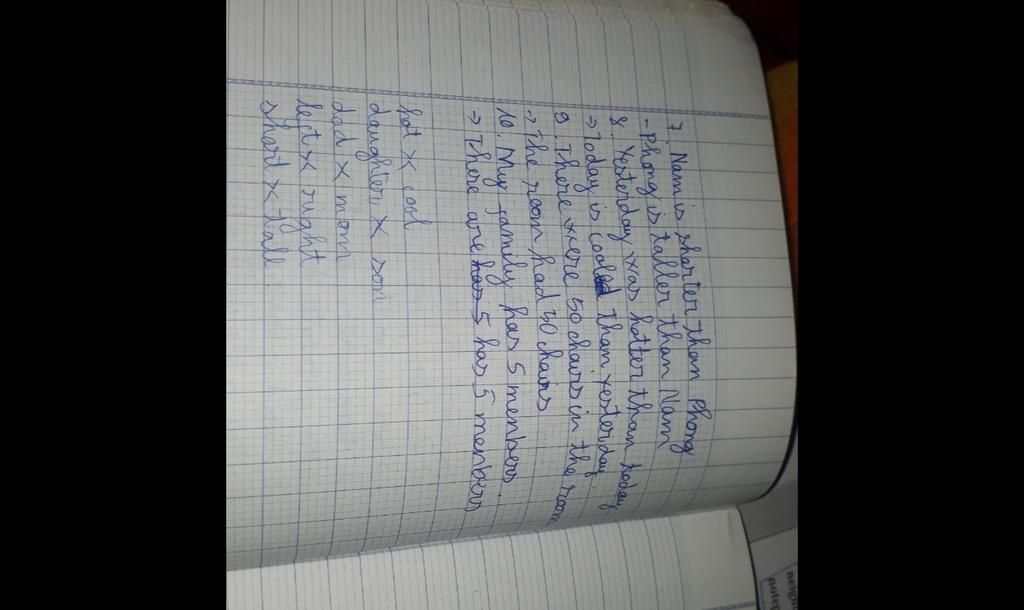 7. Nam is sharter than Phong
- Phong is taller than Nam
8. Yesterday was hotter than today
→ Today is cooled than yesterday.
9. There were 50 chairs in the room
→ The room had 50 chairs
10. My family has 5 menbers.
→ There are has 5 has 5 menbers
hot × cool
daughter × son
dad × mom
left × right
short × tall.